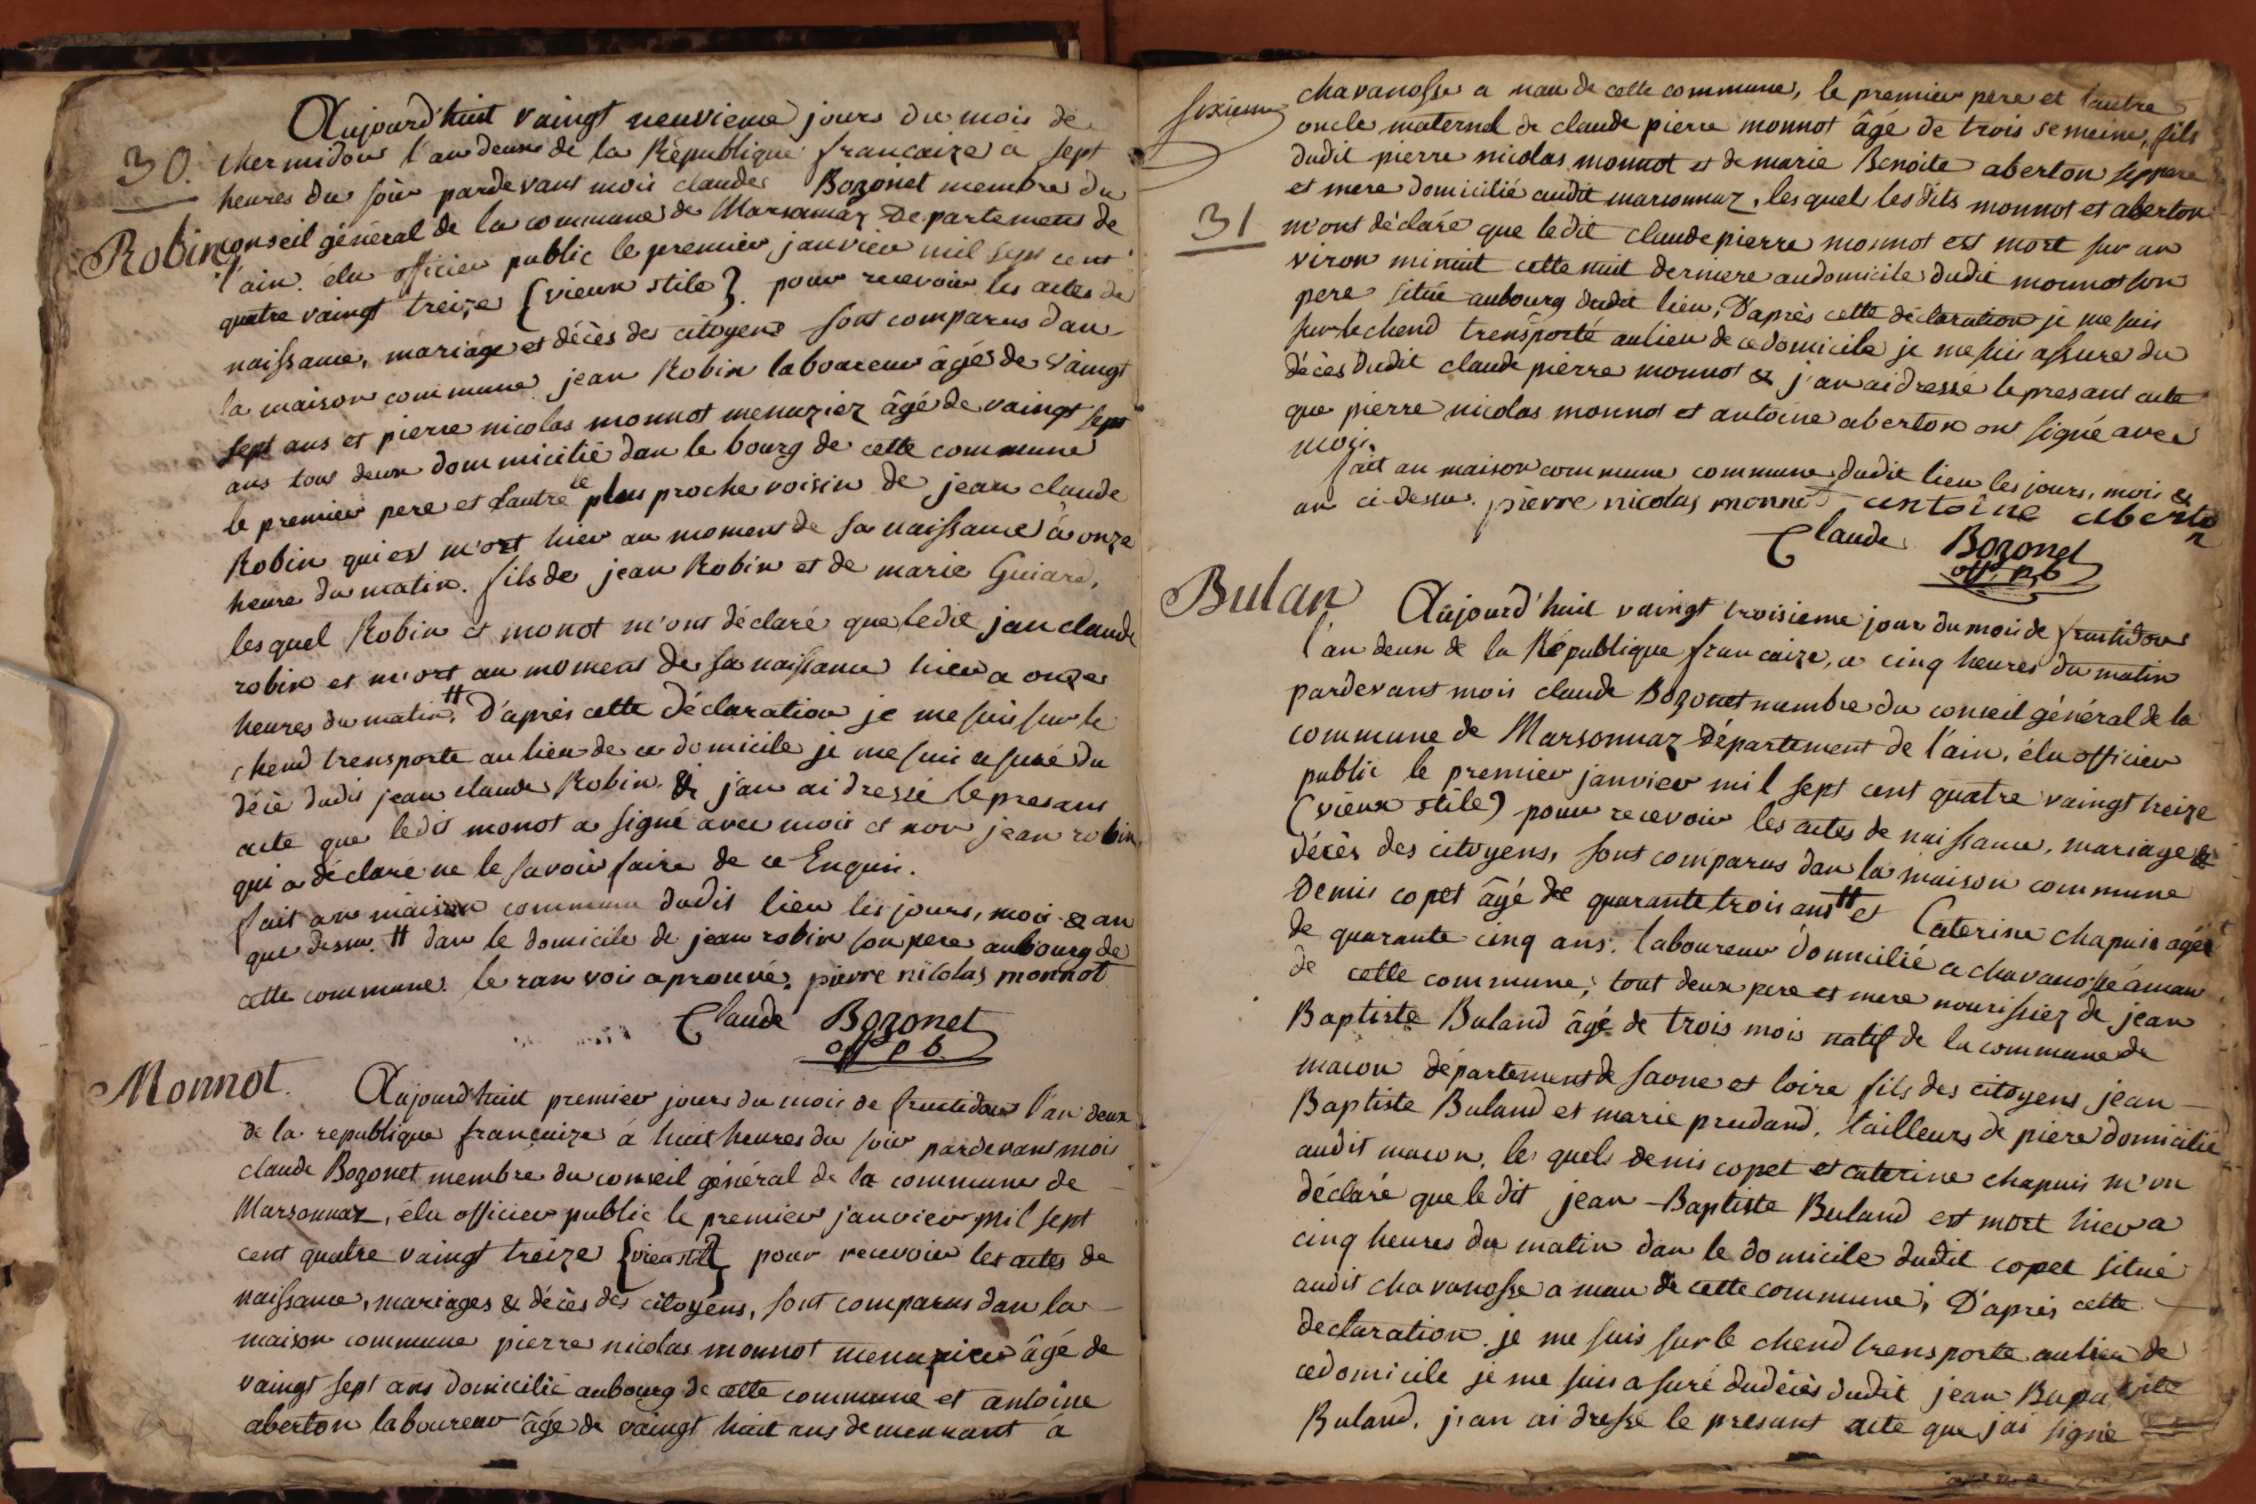 Aujourd'huit vaingt neuvieme jours du mois de
30. thermidor l'an deux de la République francaize à sept
heures du soir pardevant mois claude Bozonet membre du
Robin conseil général de la commune de Marsonnaz Departement de
l'ain. élu officier public le premier janvier mil sept cent
quatre vaingt treize {vieux stile}. pour recevoir les actes de
naissance, mariage et décès des citoyens sont comparus dan
la maison commune jean Robin laboureur âgés de vaingt
sept ans et pierre nicolas monnot menuziez âgé de vaingt sept
ans tous deux dommicilié dan le bourg de cette commune
le premier pere et l'autre le plus proche voisin de jean claude
Robin qui est m'ort hier au moment de sa naissance à onze
heure du matin. fils de jean Robin et de marie Guiard,
les quel Robin et monot m'ont déclaré que ledit jan claude
robin et m'ort au moment de sa naissance hier a onze
heures du matin, # D'après cette déclaration je me suis sur le
chend trensporte au lieu de ce domicile je me suis asuré du
décè dudit jean claude Robin. & j'an ai dressé le presant
acte que ledit monot a signé avec mois et non jean robin,
qui a déclaré ne le savoir faire de ce Enquis.
fait an maison commune dudit lieu les jours, mois & an
que dessu. # dan le domicile de jean robin son pere aubourg de
cette commune. le ranvois aprouvé. pierre nicolas monnot
Claude Bozonet
off p b
Monnot. Aujourd'huit premier jours du mois de fructidor l'an deux
de la republique françaize à huit heures du soir pardevant mois
claude Bozonet membre du conseil général de la commune de
Marsonnaz, élu officier public le premier janvier mil sept
cent quatre vaingt treize {vieu stil} pour recevoir les actes de
naissance, mariages & décès des citoyens, sont comparus dan la
maison commune pierre nicolas monnot menuzier âgé de
vaingt sept ans domicilié aubourg de cette commune et antoine
aberton laboureur âgé de vaingt huit ans demeurant à
sixieme chavanosse a mau de cette commune, le premier pere et l'autre
oncle maternel de claude pierre monnot âgé de trois semeine, fils
dudit pierre nicolas monnot et de marie Benoite aberton sep pere
et mere domicilié audit marsonnaz, les quels les dits monnot et aberton
31 m'ont déclaré que ledit claude pierre monnot est mort sur an
viron minuit cette nuit derniere audomicile dudit monnot son
pere situé aubourg dudit lieu, D'après cette déclaration je me suis
sur le chend trensporté aulieu de ce domicile je me suis assure du
décès dudit claude pierre monnot & j'an ai dressé le presant acte
que pierre nicolas monnot et antoine aberton ont signé avec
mois.
fait an maison commune commune dudit lieu les jours, mois &
an ci dessu. pierre nicolas monnot antoine aberton
Claude Bozonet
off. p, b
Bulan Aujourd'huit vaingt troisieme jour du mois de fructidor
l'an deux de la République francaize, a cinq heures du matin
pardevant mois claude Bozonet membre du conseil général de la
commune de Marsonnaz Département de l'ain, élu officier
public le premier janvier mil sept cent quatre vaingt treize
(vieux stile) pour recevoir les actes de naissance, mariage &
décès des citoyens, sont comparus dan la maison commune
Denis copet âgé de quarante trois ans # et Caterine chapuis agée
de quarante cinq ans. laboureur domicilié a chavanosse à mau
de cette commune, tout deux pere et mere nourissiez de jean
Baptiste Buland âgé de trois mois natif de la commune de
macon département de saone et loire fils des citoyens jean
Baptiste Buland et marie prudand, tailleurs de piere domicilié
audit macon, les quels denis copet et caterine chapuis m'on
déclaré que le dit jean-Baptiste Buland est mort hier a
cinq heures du matin dan le domicile dudit copet situé
audit chavanosse a mau de cette commune, D'après cette
declaration, je me suis sur le chend trensporte aulieu de
cedomicile je me suis asuré dudécès dudit jean Bapatiste
Buland. j'an ai dresse le presant acte que j'ai signé